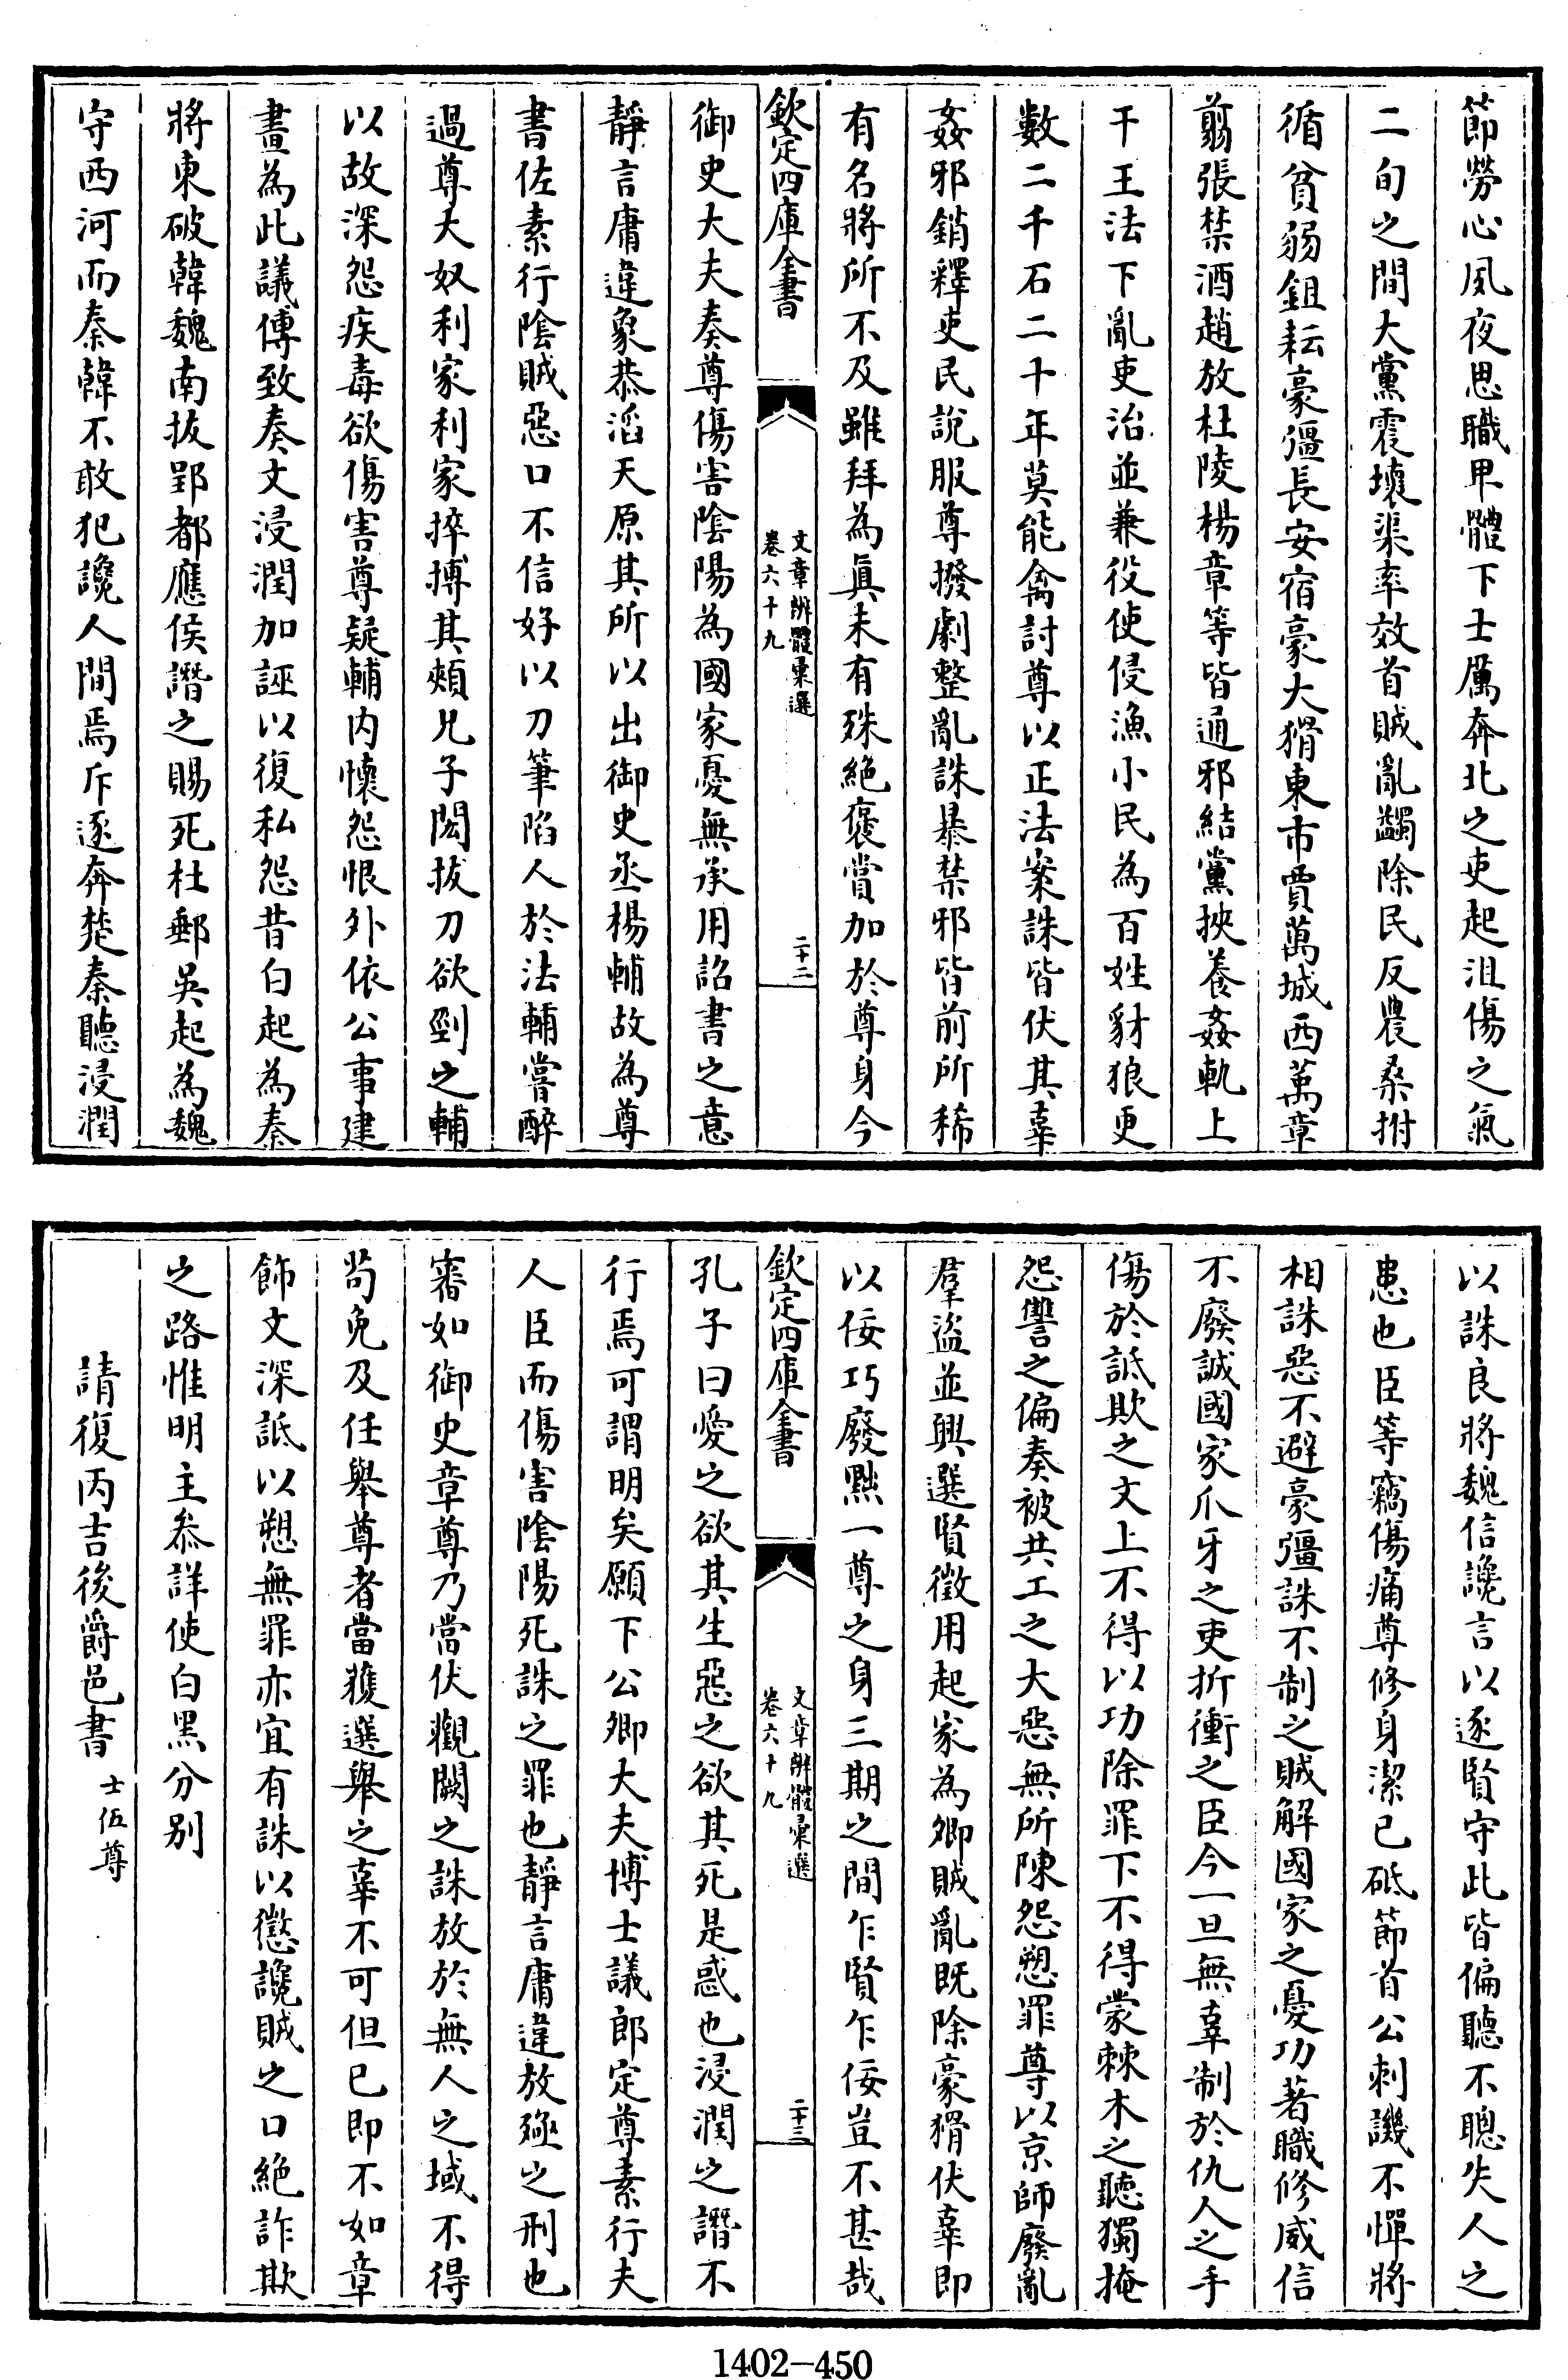 節勞心夙夜思職甲體下士厲奔北之吏起沮傷之氣
二旬之間大黨震壞渠率效首賊亂蠲除民反農桑拊
循貧弱鉏耘豪彊長安宿豪大猾東市賈萬城西萬章
翦張禁酒趙放杜陵楊章等皆通邪結黨挾養姦軌上
干王法下亂吏治並兼役使侵漁小民為百姓豺狼更
數二千石二十年莫能禽討尊以正法案誅皆伏其辜
姦邪銷釋吏民說服尊撥劇整亂誅暴禁邪皆前所稀
有名將所不及雖拜為眞未有殊絶褒賞加於尊身今
欽定四庫全書
文章辨體彙選
卷六十九
二十二
御史大夫奏尊傷害陰陽為國家憂無承用詔書之意
靜言庸違象恭滔天原其所以出御史丞楊輔故為尊
書佐素行陰賊惡口不信好以刀筆陷人於法輔嘗醉
過尊大奴利家利家捽搏其頰兄子閎拔刀欲剄之輔
以故深怨疾毒欲傷害尊疑輔内懷怨恨外依公事建
畫為此議傅致奏文浸潤加誣以復私怨昔白起為秦
將東破韓魏南拔郢都應侯譖之賜死杜郵吳起為魏
守西河而秦韓不敢犯讒人間焉斥逐奔楚秦聽浸潤
以誅良將魏信讒言以逐賢守此皆偏聽不聰失人之
患也臣等竊傷痛尊修身潔已砥節首公刺譏不憚將
相誅惡不避豪彊誅不制之賊解國家之憂功著職修威信
不廢誠國家爪牙之吏折衝之臣今一旦無辜制於仇人之手
傷於詆欺之文上不得以功除罪下不得蒙棘木之聽獨掩
怨讐之偏奏被共工之大惡無所陳怨愬罪尊以京師廢亂
羣盜並興選賢徵用起家為卿賊亂既除豪猾伏辜即
以佞巧廢黜一尊之身三期之間乍賢乍佞豈不甚哉
欽定四庫全書
文章辨體彙選
卷六十九
二十三
孔子曰愛之欲其生惡之欲其死是惑也浸潤之譖不
行焉可謂明矣願下公卿大夫博士議郎定尊素行夫
人臣而傷害陰陽死誅之罪也靜言庸違放殛之刑也
審如御史章尊乃當伏觀闕之誅放於無人之域不得
苟免及任舉尊者當獲選舉之辜不可但已即不如章
飾文深詆以愬無罪亦宜有誅以懲讒賊之口絶詐欺
之路惟明主叅詳使白黑分别
請復丙吉後爵邑書 士伍尊
1402-450